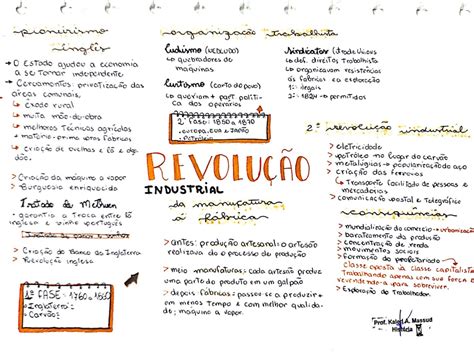 pioneirismo
inglês
→ O Estado ajudou a economia
a se tornar independente.
→ Cercamentos: privatização das
áreas comunais.
↳ êxodo rural
↳ muita mão-de-obra
↳ melhores técnicas agrícolas
↳ matéria-prima para fábricas
↳ criação de ovelhas e lã e algodão.
→ Criação da máquina a vapor
→ Burguesia enriquecida
Tratado de Methuen
- garantia a troca entre lã
inglesa e vinho português
→ Criação do Banco da Inglaterra
→ Revolução inglesa
1ª FASE: 1760 a 1850
• Inglaterra
• Carvão
organização trabalhista
Ludismo (NEDLUDD)
↳ quebradores de
máquinas
Cartismo (carta do povo)
↳ queriam + part. política
dos operários
2ª FASE: 1850 a 1870
• Europa, EUA e Japão
• Petróleo
Sindicatos (Trade Unions
↳ def. direitos Trabalhista
↳ organizavam resistências
às fábricas e a exploração
1º: ilegais
2º: 1824 → permitidos
REVOLUÇÃO
INDUSTRIAL
da manufatura
à fábrica
→ antes: produção artesanal: o artesão
realizava do o processo de produção
→ meio manufaturas: cada artesão produz
uma parte do produto em um galpão
→ depois fábricas: passou se a produzir +
em menos tempo e com melhor qualidade:
maquina a vapor.
2ª revolução industrial
→ eletricidade
→ petróleo no lugar do carvão
→ metalúrgicas → popularização aço
→ criação das ferrovias
↳ Transporte facilitado de pessoas e
mercadorias
→ comunicação postal e Telegráfica
consequências
→ mundialização do comercio → urbanização
→ barateamento da produção
→ Concentração de renda
→ movimentos Sociais
→ Formação do proletariado
Classe oposta à classe capitalista
Trabalhando apenas com sua força
vendendo-a para sobreviver.
→ Exploração do Trabalhador.
Prof. A. Massud
História